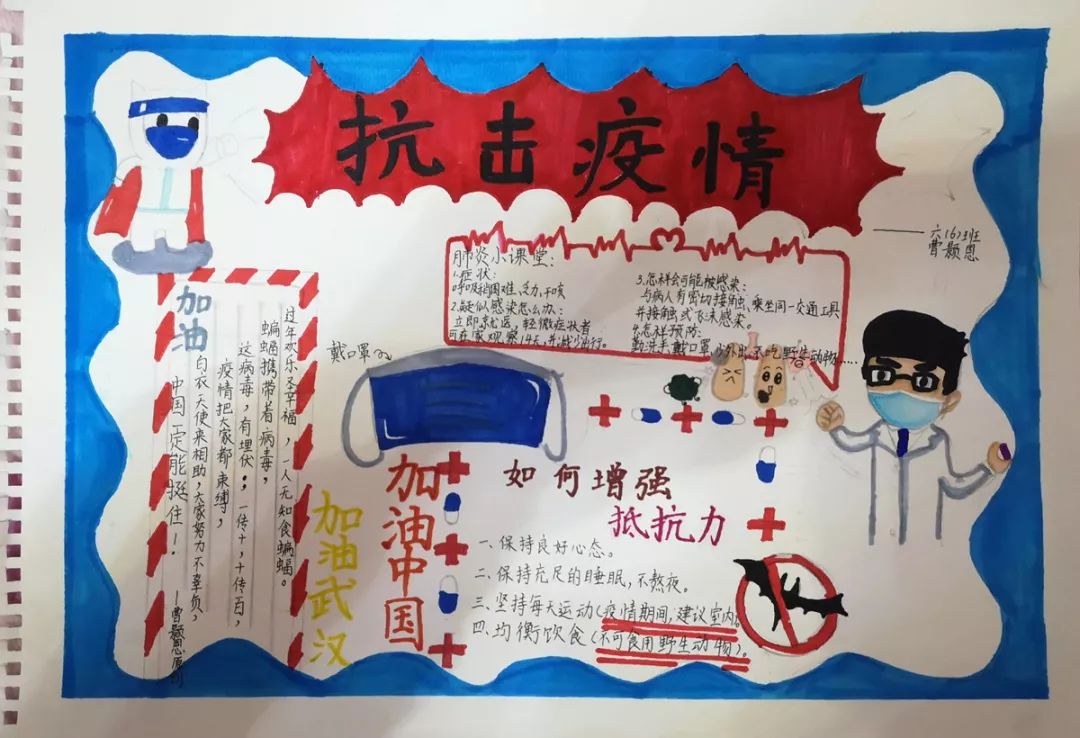 抗击疫情
——六(6)班
曹颢恩
肺炎小课堂:
1.症状:
呼吸稍困难、乏力、干咳
2.疑似感染怎么办:
立即就医,轻微症状者
可在家观察14天,并减少出行。
3.怎样会可能被感染:
与病人有密切接触、乘坐同一交通工具
并接触或飞沫感染。
4.怎样预防:
勤洗手、戴口罩、少外出、不吃野生动物……
戴口罩
加油
过年欢乐圣幸福,一人无知食蝙蝠。
蝙蝠携带者病毒,
这病毒,有埋伏;一传十,十传百,
疫情把大家都束缚,
白衣天使来相助,大家努力不辜负,
中国一定能挺住!
加油武汉
加油中国
如何增强
抵抗力
一、保持良好心态。
二、保持充足的睡眠,不熬夜。
三、坚持每天运动(疫情期间,建议室内)。
四、均衡饮食(不可食用野生动物)。